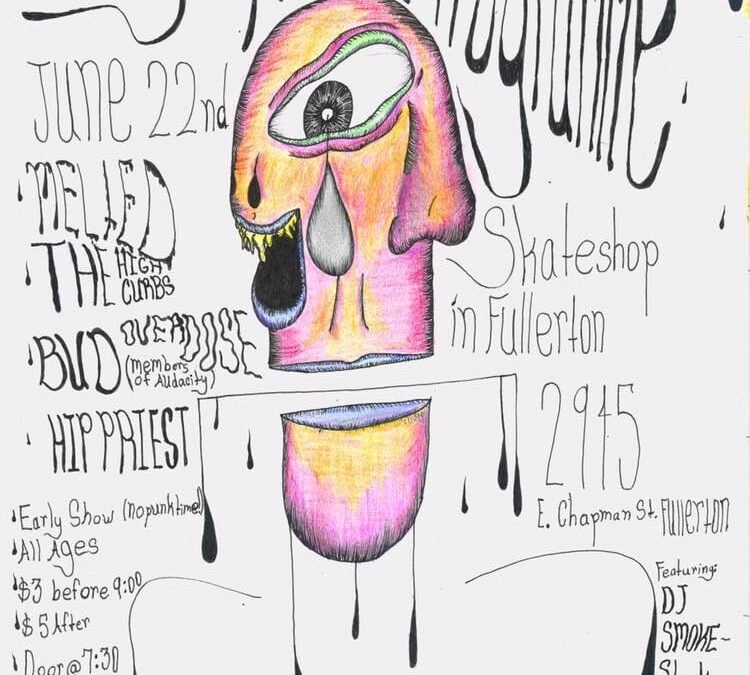 June 22nd
MELTED
THE HIGH
CURBS
BUD OVERDOSE
(members
of Audacity)
HIP PRIEST
Early Show (nopunktime!)
All Ages
$3 before 9:00
$5 After
Door@7:30
Skateshop
in Fullerton
2945
E. Chapman St. Fullerton
Featuring:
DJ
SMOKE-